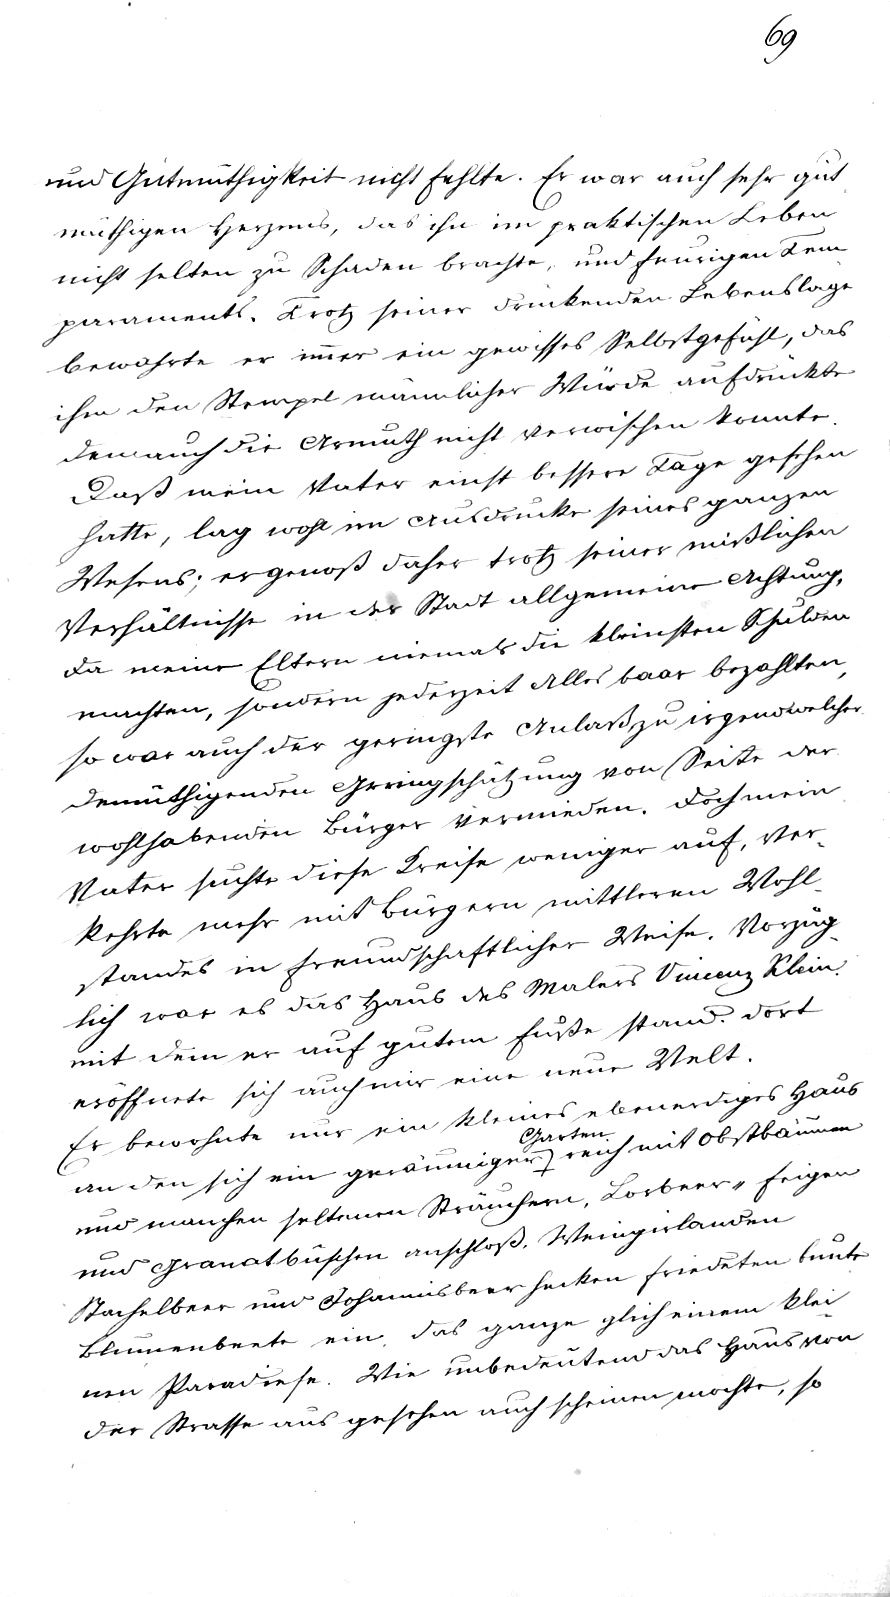 69
und Gutmüthigkeit nicht fehlte. Er war auch sehr gut
müthigen Herzens, das ihn im praktischen Leben
nicht selten zu Schaden brachte, und feurigen Tem
peraments. Trotz seiner drückenden Lebenslage
bewahrte er im̅er ein gewisses Selbstgefühl, das
ihm den Stempel männlicher Würde aufdrückte
dem auch die Armuth nicht verwischen konnte.
Daß mein Vater einst bessere Tage gesehen
hatte, lag wohl im Ausdrucke seines ganzen
Wesens; er genoß daher trotz seiner mißlichen
Verhältnisse in der Stadt allgemeine Achtung,
da meine Eltern niemals die kleinsten Schulden
machten, sondern jederzeit Alles baar bezahlten,
so war auch der geringste Anlaß zu irgendwelcher
demüthigenden Geringschätzung von Seite der
wohlhabenden Bürger vermieden. Doch mein
Vater suchte diese Kreise weniger auf, ver-
kehrte mehr mit Bürgern mittleren Wohl-
standes in freundschaftlicher Weise. Vorzüg-
lich war es das Haus des Malers Vincenz Klein.
mit dem er auf gutem Fuße stand. dort
eröffnete sich auch mir eine neue Welt.
Er bewohnte nur ein kleines ebenerdiges Haus
an den sich ein geräumiger Garten reich mit Obstbäumen
und manchen seltenen Sträuchern, Lorbeer- Feigen
und Granatbüschen anschloß. Weingirlanden
Stachelbeer und Johannisbeer hecken friedeten bunte
Blumenbeete ein, das ganze glich einem klei
nen Paradiese. Wie unbedeutend das Haus von
der Strasse aus gesehen auch scheinen mochte, so